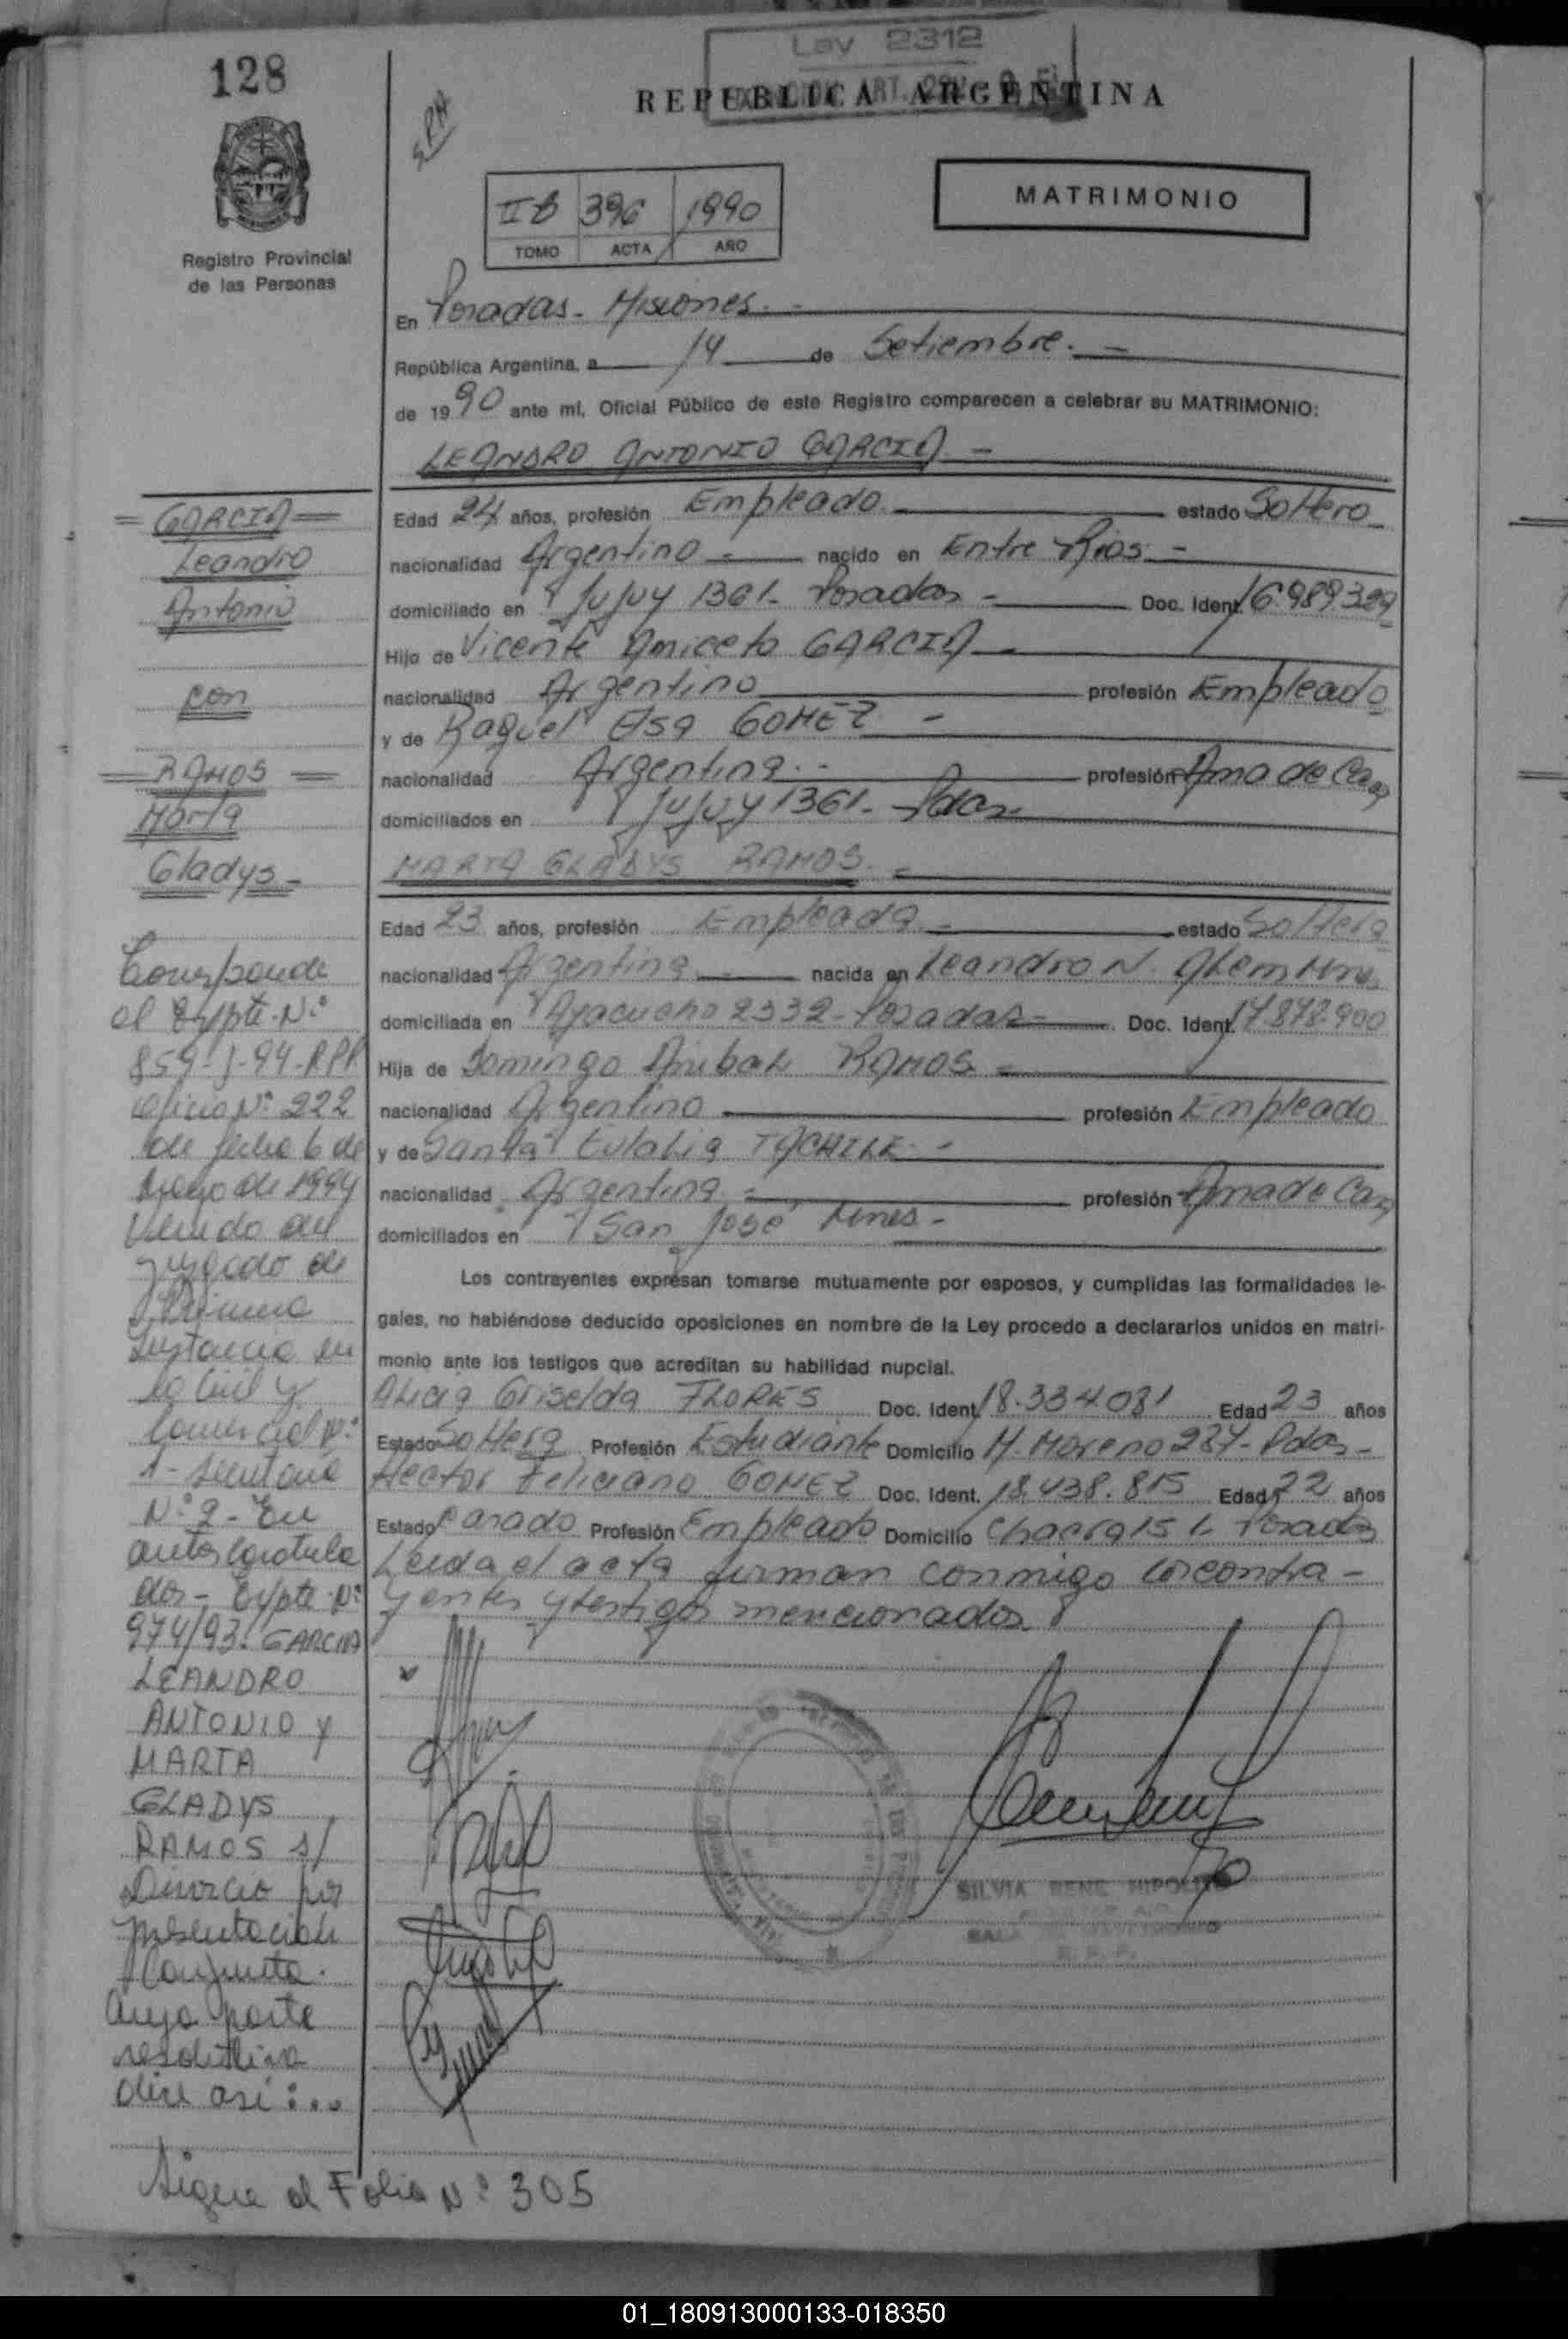 128
Ley 2312
REPUBLICA ARGENTINA
MATRIMONIO
II B 396 1990
TOMO ACTA AÑO
Registro Provincial
de las Personas
En Posadas - Misiones. -
República Argentina, a 14 de Setiembre. -
de 1990 ante mí, Oficial Público de este Registro comparecen a celebrar su MATRIMONIO:
LEANDRO ANTONIO GARCIA -
Edad 24 años, profesión Empleado. estado Soltero
nacionalidad Argentino - nacido en Entre Rios. -
domiciliado en Jujuy 1361 - Posadas - Doc. Ident. 16.989.329
Hijo de Vicente Aniceto GARCIA -
nacionalidad Argentino profesión Empleado
y de Raquel Elsa GOMEZ. -
nacionalidad Argentina. - profesión Ama de Casa
domiciliados en Jujuy 1361 - Pdas -
MARTA GLADYS RAMOS. -
Edad 23 años, profesión Empleada - estado Soltera
nacionalidad Argentina nacida en Leandro N. Alem Mnes
domiciliada en Ayacucho 2332 - Posadas - Doc. Ident. 17.878.900
Hija de Domingo Anibal RAMOS -
nacionalidad Argentino profesión Empleado
y de Santa Eulalia TACHILE. -
nacionalidad Argentina - profesión Ama de Casa
domiciliados en San José Mnes -
Los contrayentes expresan tomarse mutuamente por esposos, y cumplidas las formalidades le-
gales, no habiéndose deducido oposiciones en nombre de la Ley procedo a declararlos unidos en matri-
monio ante los testigos que acreditan su habilidad nupcial.
Alicia Griselda FLORES Doc. Ident. 18.334.081 Edad 23 años
Estado Soltera Profesión Estudiante Domicilio M. Moreno 237 - Pdas -
Hector Feliciano GOMEZ Doc. Ident. 18.438.815 Edad 22 años
Estado Casado Profesión Empleado Domicilio Chacra 151 - Posadas
Leida el acta firman conmigo los contra-
yentes y testigos mencionados.
SILVIA RENE HIPOLITO
R. P. P.
= GARCIA =
Leandro
Antonio
con
= RAMOS =
Marta
Gladys -
Corresponde
al Expte. Nº
859-J-94-RPP
Oficio Nº 222
de fecha 6 de
Mayo de 1994
Venido del
Juzgado de
Primera
Instancia en
lo Civil y
Comercial Nº
1 - Secretaría
Nº 2 - En
autos caratula
dos - Expte. Nº
974/93. GARCIA
LEANDRO
ANTONIO y
MARTA
GLADYS
RAMOS s/
Divorcio por
presentación
Conjunta.
Cuya parte
resolutiva
dice así:...
Sigue al Folio Nº 305
01_180913000133-018350